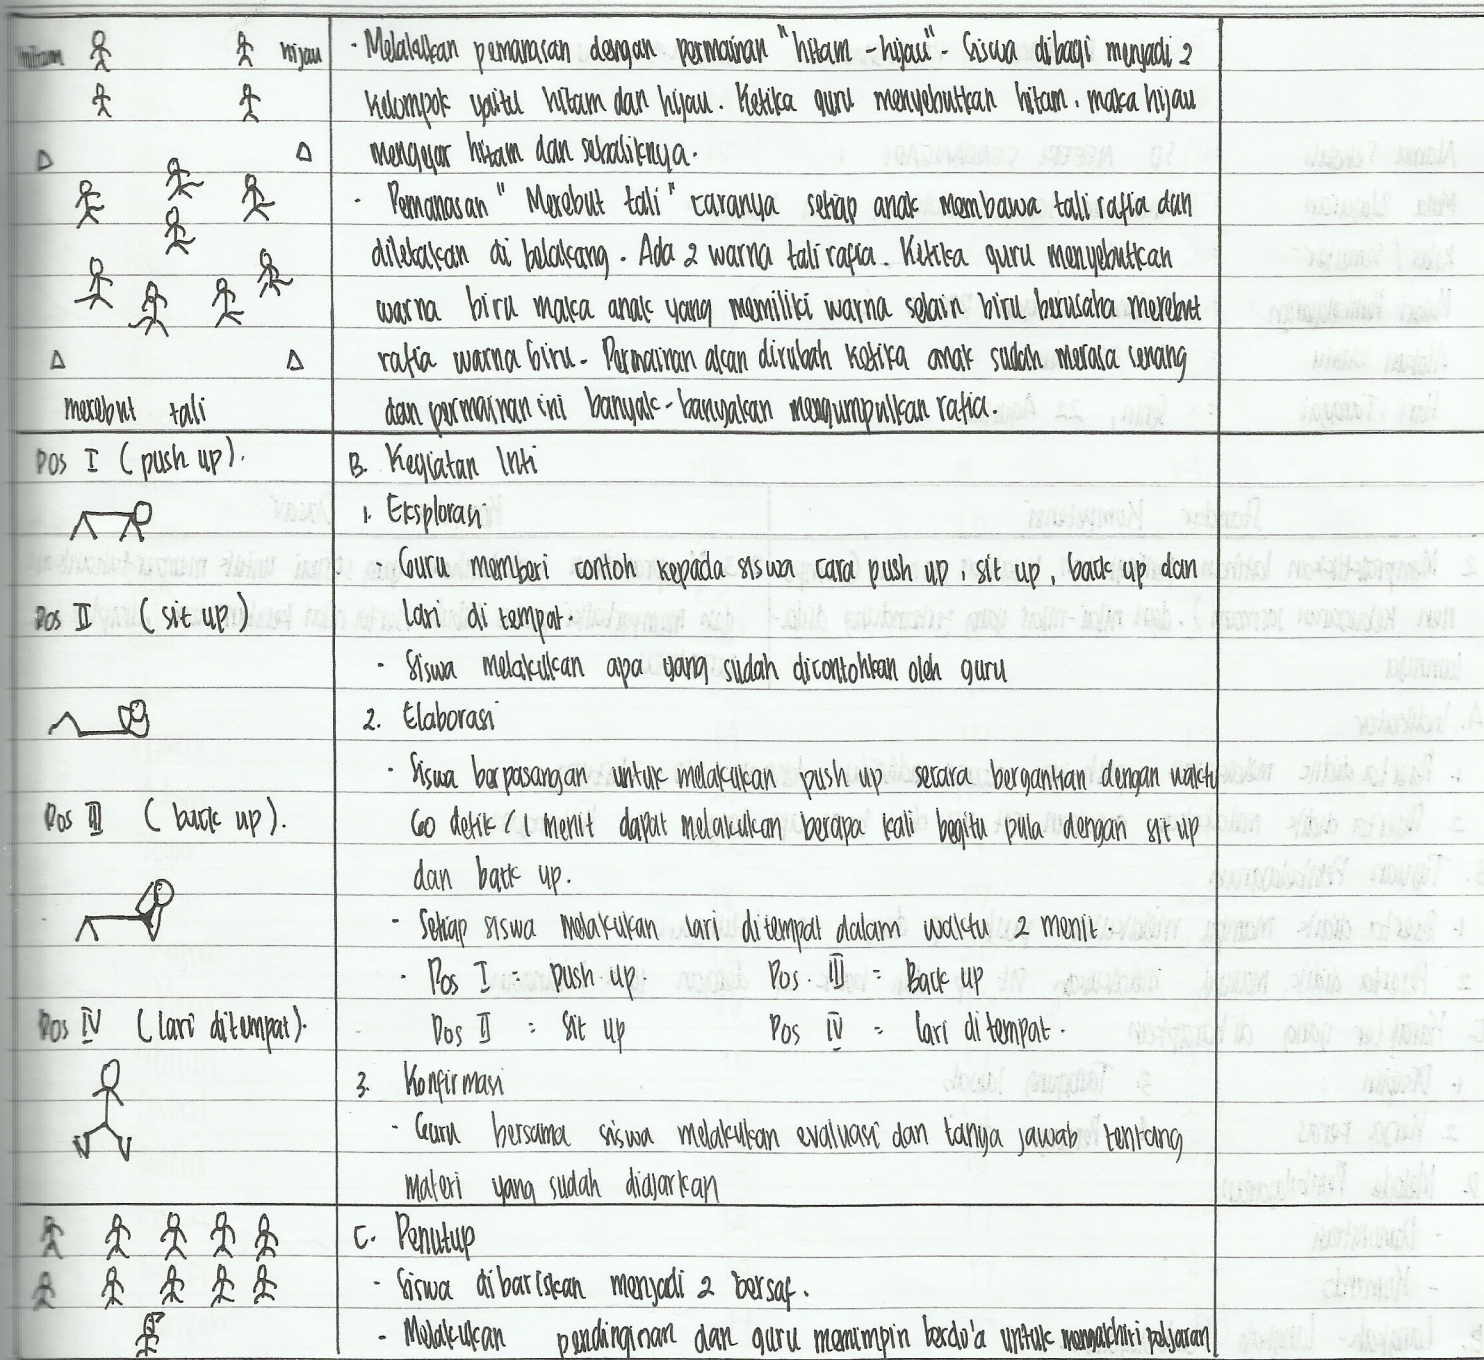 hitam hijau
- Melakukan pemanasan dengan permainan "hitam - hijau". Siswa dibagi menjadi 2
kelompok yaitu hitam dan hijau. Ketika guru menyebutkan hitam, maka hijau
mengejar hitam dan sebaliknya.
- Pemanasan "Merebut tali" caranya setiap anak membawa tali rafia dan
diletakkan di belakang. Ada 2 warna tali rafia. Ketika guru menyebutkan
warna biru maka anak yang memiliki warna selain biru berusaha merebut
rafia warna biru. Permainan akan dirubah ketika anak sudah merasa senang
merebut tali
dan permainan ini banyak-banyakan mengumpulkan rafia.
Pos I (push up).
B. Kegiatan Inti
1. Eksplorasi
Guru memberi contoh kepada siswa cara push up, sit up, back up dan
Pos II (sit up)
lari di tempat.
- Siswa melakukan apa yang sudah dicontohkan oleh guru
2. Elaborasi
- Siswa berpasangan untuk melakukan push up secara bergantian dengan waktu
Pos III (back up).
60 detik / 1 menit dapat melakukan berapa kali begitu pula dengan sit up
dan back up.
- Setiap siswa melakukan lari ditempat dalam waktu 2 menit.
- Pos I = push up Pos. III = Back up
Pos IV (lari ditempat).
Pos II = sit up Pos IV = lari ditempat.
3. Konfirmasi
- Guru bersama siswa melakukan evaluasi dan tanya jawab tentang
materi yang sudah diajarkan
C. Penutup
- Siswa dibariskan menjadi 2 bersaf.
- Melakukan pendinginan dan guru memimpin berdo'a untuk mengakhiri peljaran